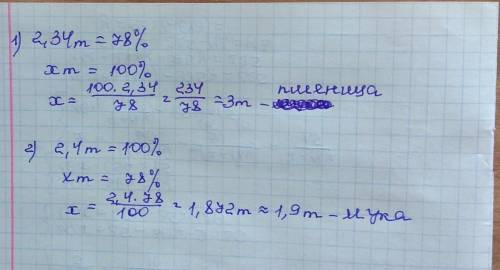 1) 2,34т = 78%
хт = 100%
х = 100·2,34/78 = 234/78 = 3т – пшеница
2) 2,4т = 100%
хт = 78%
х = 2,4·78/100 = 1,872т ≈ 1,9т – мука